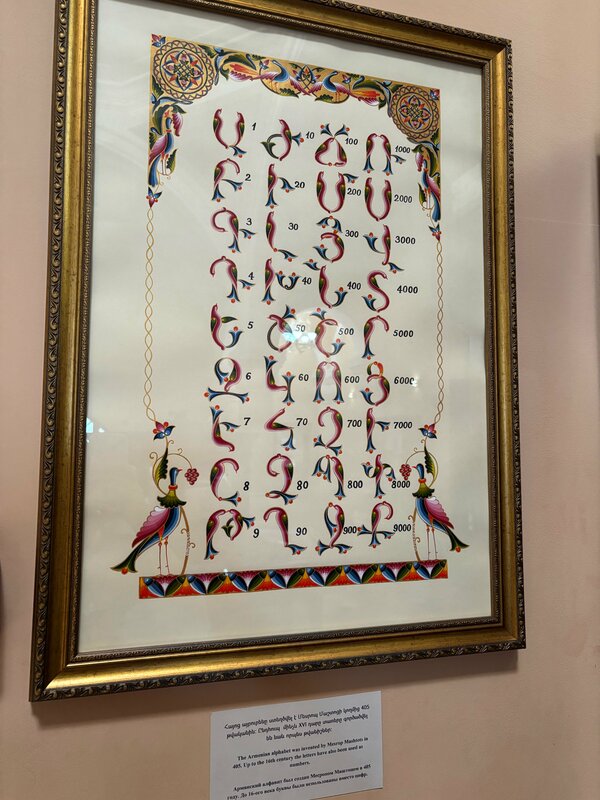 Ա 1 Ժ 10 Ճ 100 Ռ 1000
Բ 2 Ի 20 Մ 200 Ս 2000
Գ 3 Լ 30 Յ 300 Վ 3000
Դ 4 Խ 40 Ն 400 Տ 4000
Ե 5 Ծ 50 Շ 500 Ր 5000
Զ 6 Կ 60 Ո 600 Ց 6000
Է 7 Հ 70 Չ 700 Ւ 7000
Ը 8 Ձ 80 Պ 800 Փ 8000
Թ 9 Ղ 90 Ջ 900 Ք 9000
Հայոց այբուբենը ստեղծվել է Մեսրոպ Մաշտոցի կողմից 405
թվականին: Ընդհուպ մինչև XVI դարը տառերը գործածվել
են նաև որպես թվանիշներ:
The Armenian alphabet was invented by Mesrop Mashtots in
405. Up to the 16th century the letters have also been used as
numbers.
Армянский алфавит был создан Месропом Маштоцом в 405
году. До 16-ого века буквы были использованы вместо цифр.